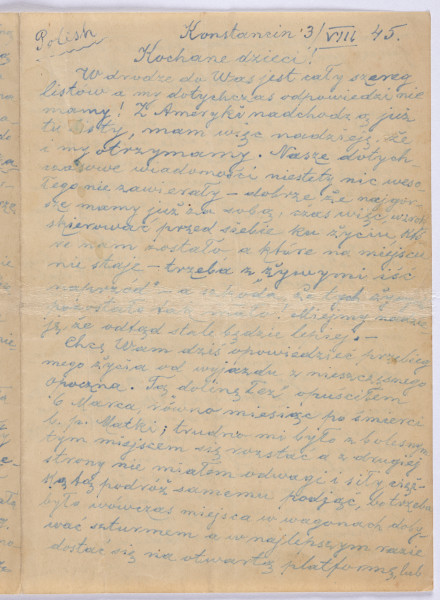 Polish
Konstancin 3/VIII 45.
Kochane dzieci!
W drodze do Was jest cały szereg
listów a my dotychczas odpowiedzi nie
mamy! Z Ameryki nadchodzą już
tu listy, mam więc nadzieję, że
i my otrzymamy. Nasze dotych
czasowe wiadomości niestety nic weso
łego nie zawierały – dobrze że najgor
sze mamy już za sobą, czas więc wzrok
skierować przed siebie ku życiu któ
re nam zostało a które na miejscu
nie staje – trzeba z żywymi iść
naprzód" – a szkoda, że tych
pozostało tak mało! Miejmy nadzie
ję, że odtąd stale będzie lepiej. –
Chcę Wam dziś opowiedzieć przebieg
mego życia od wyjazdu z nieszczęsnego
Opoczna. Tą dolinę Łez, opuściłem
6 Marca, równo miesiąc po śmierci
b. p. Matki; trudno mi było z bolesnym
tym miejscem się rozstać a z drugiej
strony nie miałem odwagi i siły cięż
ką podróż samemu podjąć, bo trzeba
było wówczas miejsca w wagonach doby
wać szturmem a w najlepszym razie
dostać się na otwartą platformę, lub